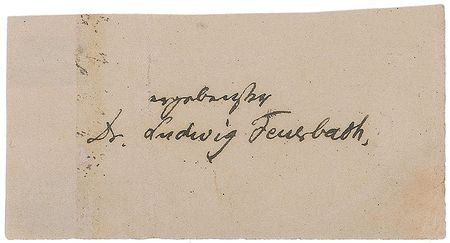 ergebenster
Dr. Ludwig Feuerbach.